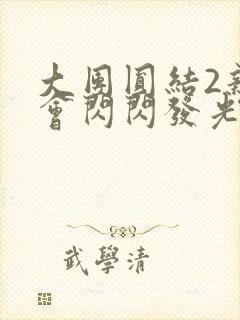 大团圓結2
會閃閃發光
武學清